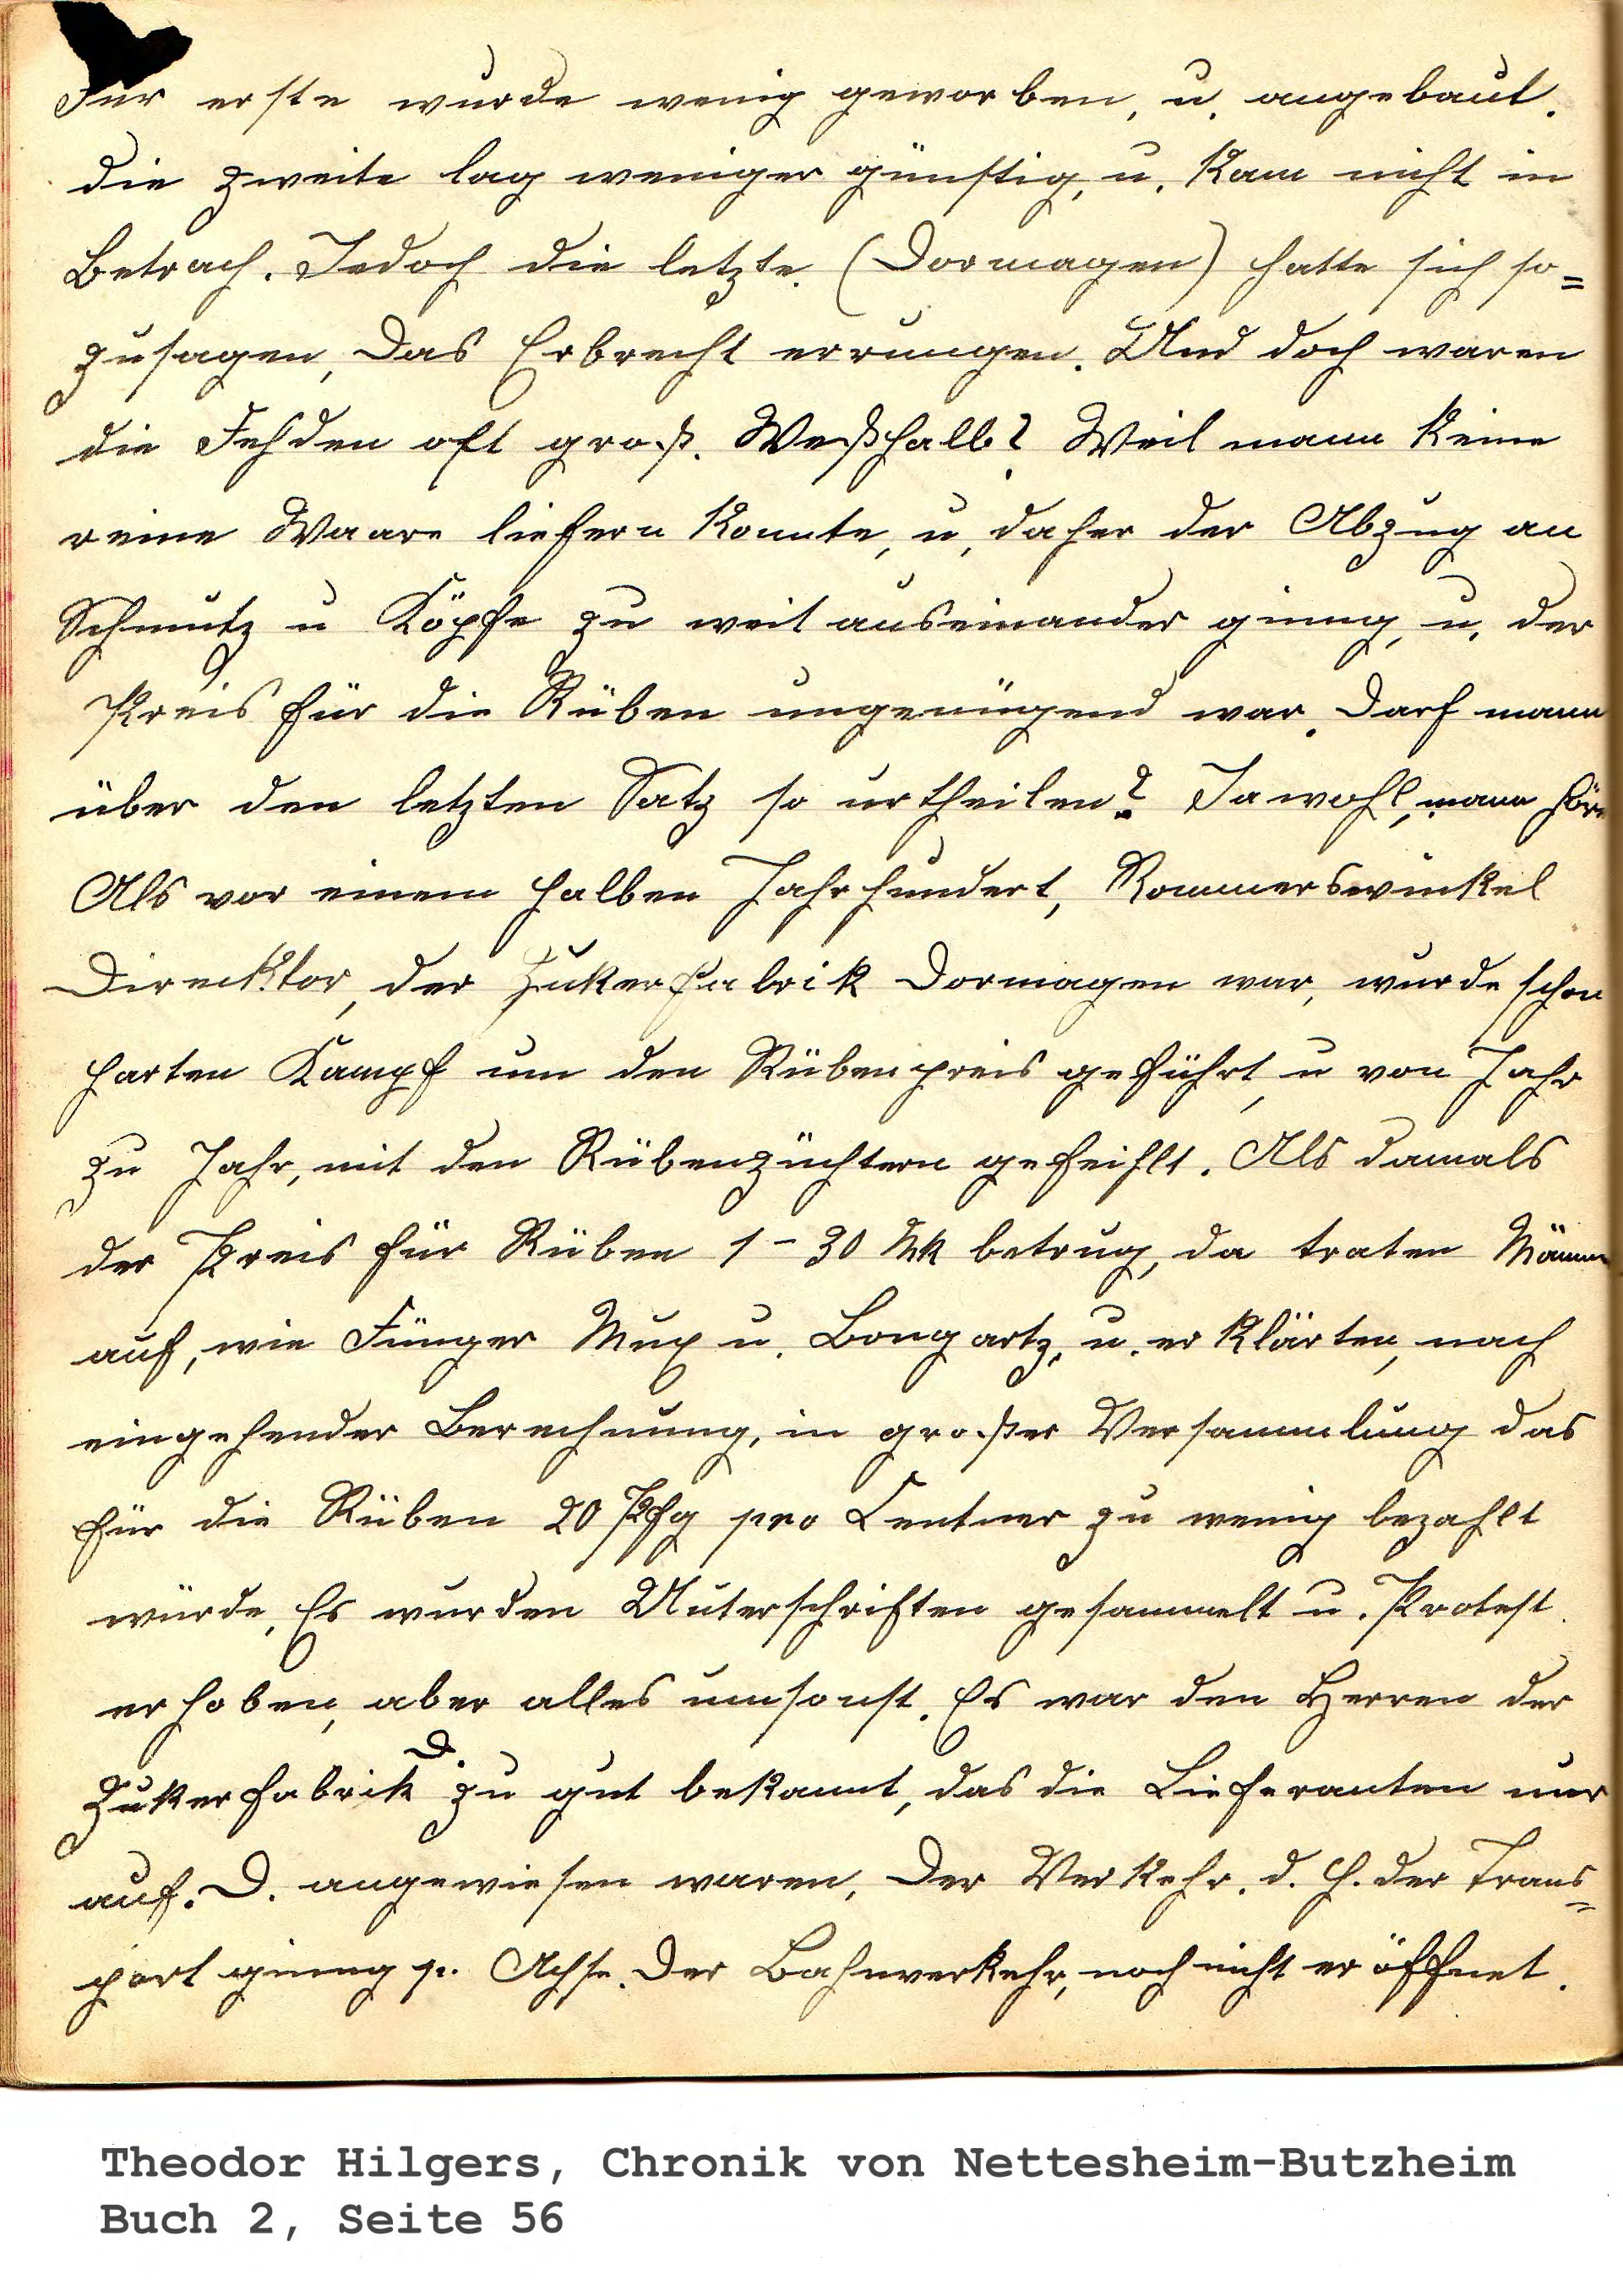 Für erste wurde wenig geworben, u. angebaut.
die zweite lag weniger günstig, u. kam nicht in
Betrach. Jedoch die letzte. (Dormagen) hatte sich so=
zusagen, das Erbrecht errungen. Und doch waren
die Fehden oft groß. Weßhalb? Weil mann keine
reine Waare liefern konnte, u, daher der Abzug an
Schmutz u Köpfe zu weit auseinander ginng, u. der
Preis für die Rüben ungenügend war. Darf mann
über den letzten Satz so urtheilen? Jawohl, mann höre
Als vor einem halben Jahrhundert, Rommerswinkel
Direcktor, der Zukerfabrik Dormagen war, wurde schon
harten Kampf um den Rübenpreis geführt, u von Jahr
zu Jahr, mit den Rübenzüchtern gefeihlt. Als damals
der Preis für Rüben 1-30 Mk betrug, da traten Männer
auf, wie Fünger Mux u. Bongartz, u. erklärten, nach
eingehender Berechnung, in großer Versammlung das
für die Rüben 20 Pfg pro Centner zu wenig bezahlt
würde, Es wurden Unterschriften gesammelt u. Protest.
erhoben, aber alles umsonst. Es war den Herren der
Zukerfabrik D. zu gut bekannt, das die Lieferanten nur
auf. D. angewiesen waren, Der Verkehr. d. h. der Trans=
port ginng p. Achse. Der Bahnverkehr, noch nicht eröffnet.
Theodor Hilgers, Chronik von Nettesheim-Butzheim
Buch 2, Seite 56